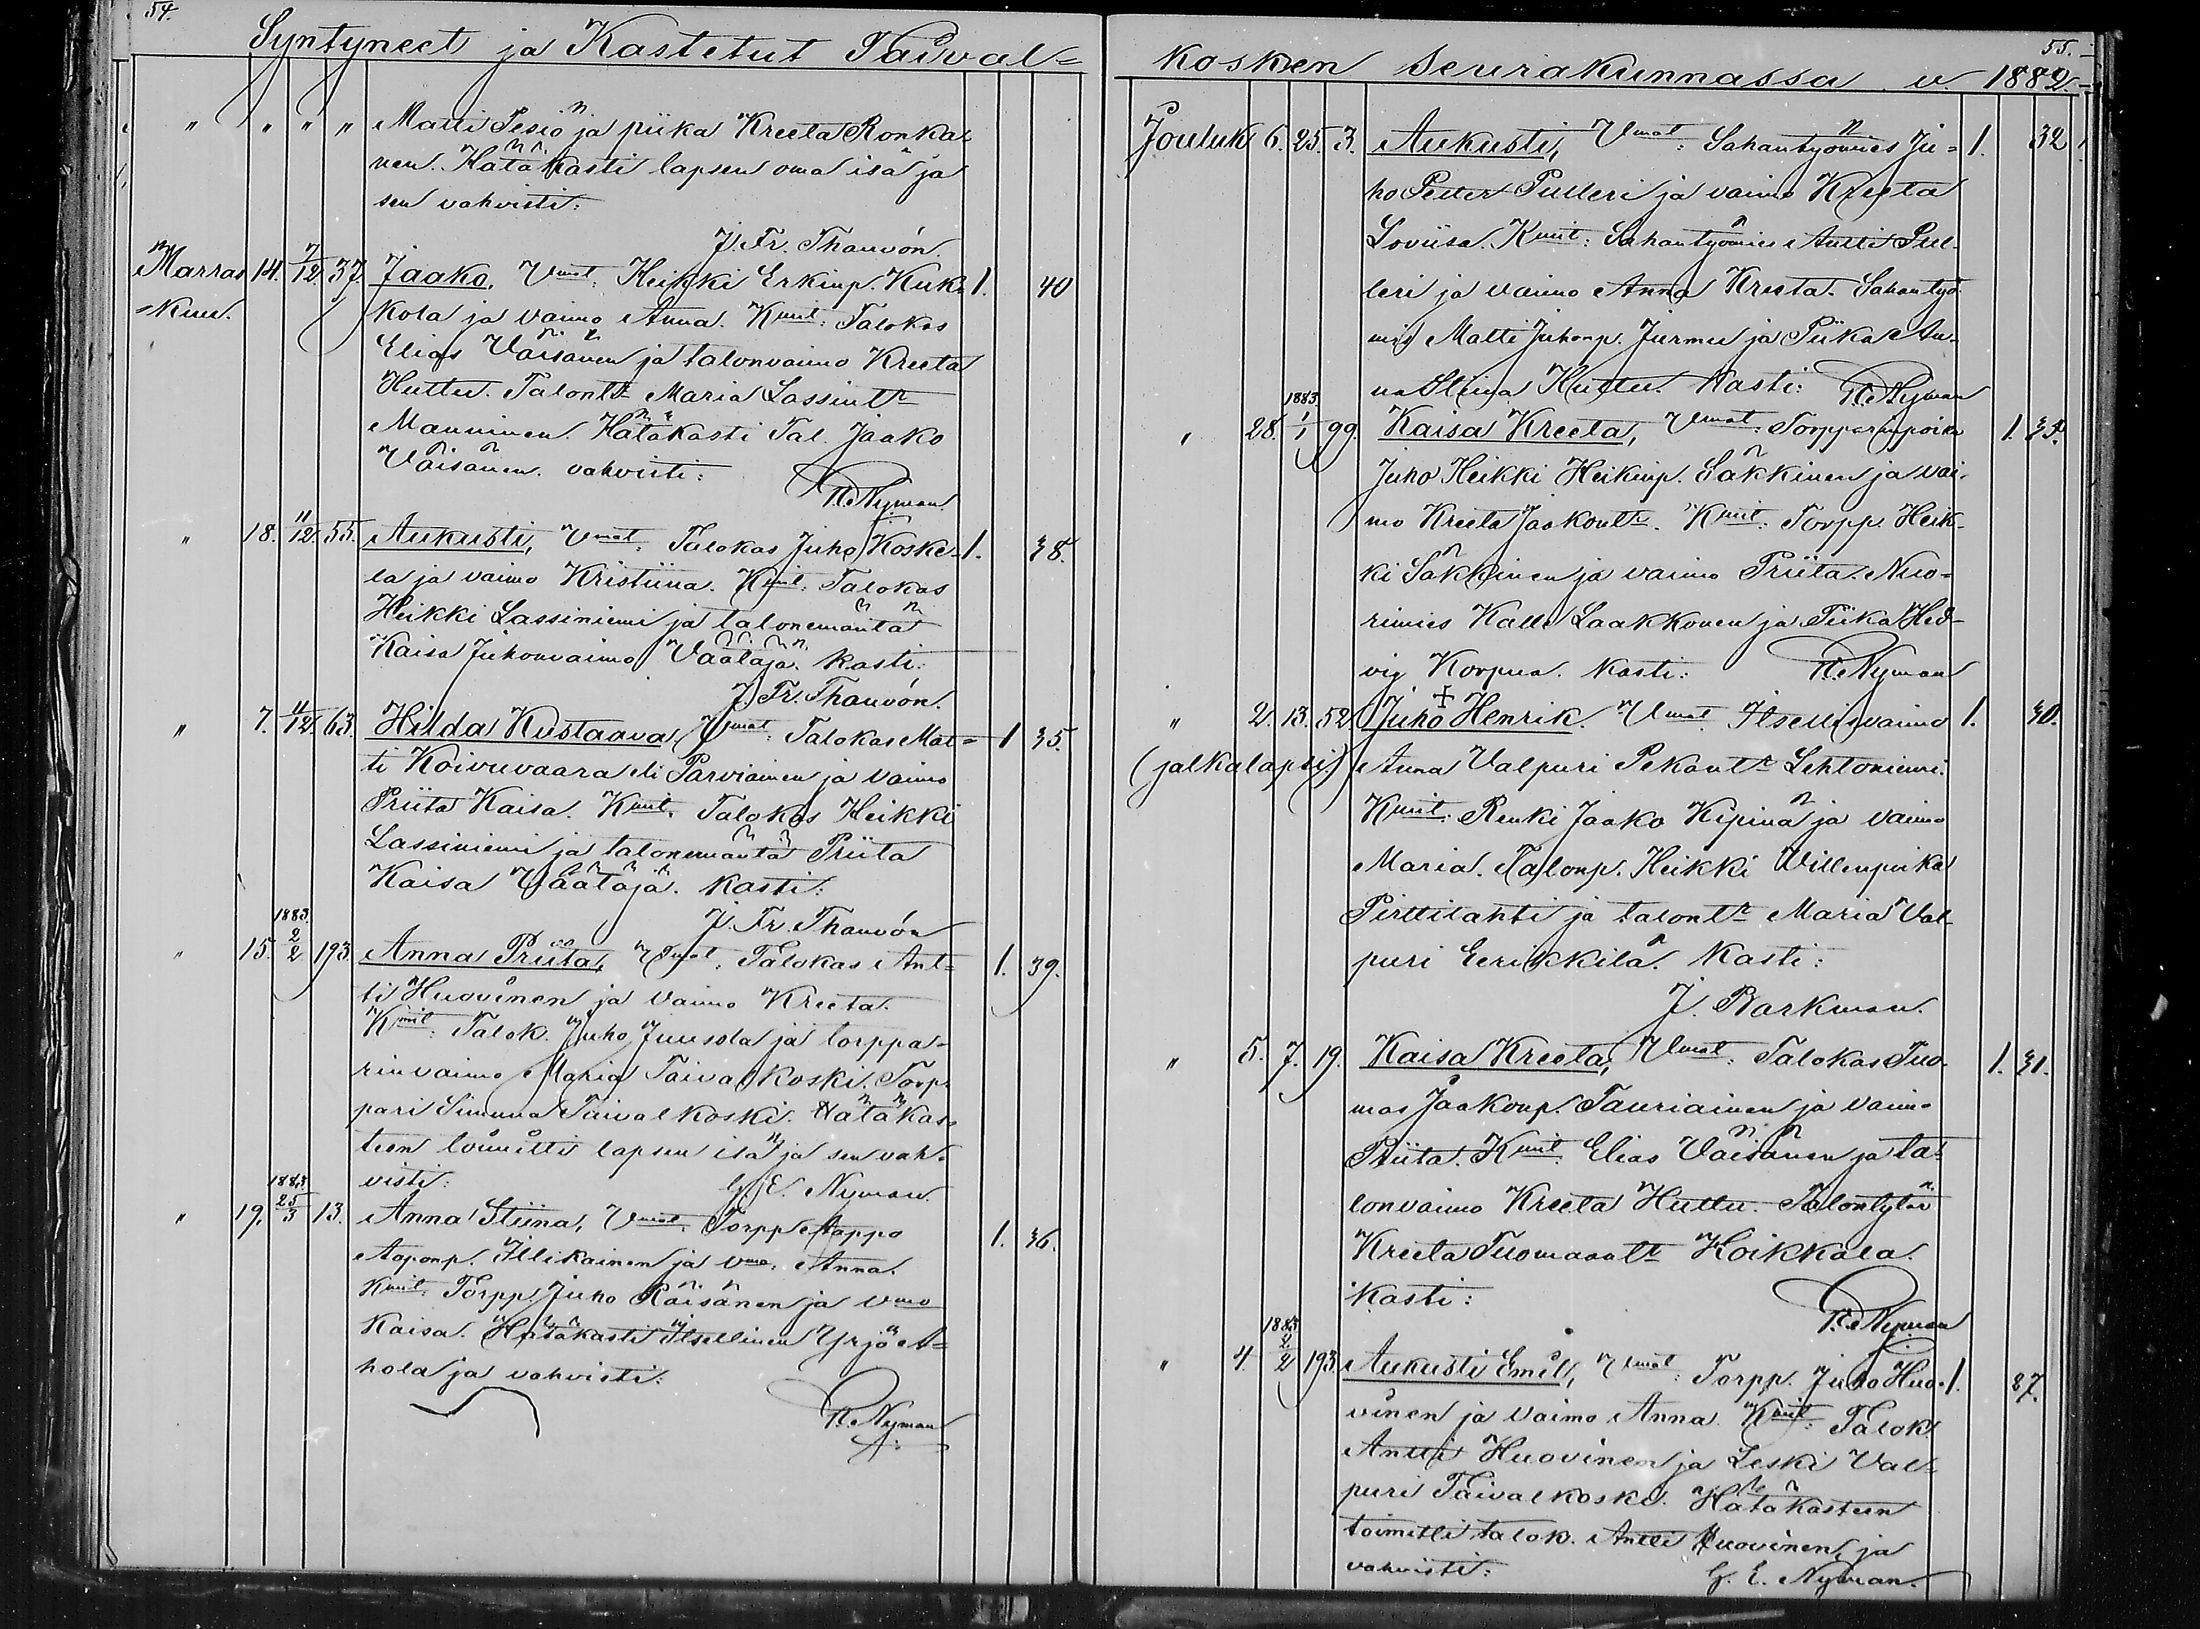 54.
Syntyneet ja Kastetut Taival=
" " " " Matti Pesiö ja piika Kreeta Ronka-
nen. Hätäkasti lapsen oma isä ja
sen vahvisti:
J. Fr. Thauvón.
Marras 14. 7/12. 37. Jaako, Vmat: Heikki Erkinp. Kuk= 1. 40
=kuu. kola ja vaimo Anna. Kmit: Talokas
Elias Väisänen ja talonvaimo Kreeta
Huttu. Talontr Maria Lassintr
Manninen. Hätäkasti Tal. Jaako
Väisänen. vahvisti:
Nyman
" 18. 11/12. 55. Aukusti, Vmat: Talokas Juho Koske- 1. 38.
la ja vaimo Kristiina. Kmit: Talokas
Heikki Lassiniemi ja talonemäntä
Kaisa Juhonvaimo Väätäjä. Kasti:
J. Fr. Thauvón.
" 7. 11/12. 63. Hilda Kustaava, Vmat: Talokas Mat= 1 35.
ti Koivuvaara eli Parviainen ja vaimo
Priita Kaisa. Kmit. Talokas Heikki
Lassiniemi ja talonemäntä Priita
Kaisa Väätäjä. Kasti:
J. Fr. Thauvón
" 15. 1883. 2/2 193. Anna Priita, Vmat: Talokas Ant= 1. 39.
ti Huovinen ja vaimo Kreeta.
Kmit: Talok. Juho Juusola ja torppa-
rinvaimo Maria Taivalkoski. Torp-
pari Simuna Taivalkoski. Hätäkas-
teen toimitti lapsen isä ja sen vah-
visti:
G. E. Nyman.
" 19. 1883. 25/3 13. Anna Stiina, Vmat. Torpp Aappo 1. 36.
Aaponp. Illikainen ja vmo. Anna.
Kmit: Torpp. Juho Räisänen ja vmo
Kaisa. Hätäkasti Itsellinen Yrjö A=
hola ja vahvisti:
Nyman
55.
kosken Seurakunnassa v. 1882.
Jouluk 6. 25. 3. Aukusti, Vmat: Sahantyömies Ju= 1. 32
ho Petter Pulleri ja vaimo Kreeta
Loviisa. Kmit: Sahantyömies Antti Pul-
leri ja vaimo Anna Kreeta. Sahantyö-
mis Matti Juhonp. Jurmu ja Piika An-
na Stiina Huttu. Kasti: Nyman
" 28. 1883 1/1 99. Kaisa Kreeta, Vmat: Torpparinpoika 1. 35.
Juho Heikki Heikinp. Säkkinen ja vai-
mo Kreeta Jaakontr. Kmit: Torpp. Heik-
ki Säkkinen ja vaimo Priita. Nuo=
rimies Kalle Laakkonen ja Piika Hed-
vig Korpua. Kasti: Nyman
" 2. 13. 52. + Juho Henrik. Vmat. Itsellisvaimo 1. 30.
(jalkalapsi) Anna Valpuri Pekantr Lehtoniemi.
Kmit. Renki Jaako Kipinä ja vaimo
Maria. Talonp. Heikki Willenpoika
Pirttilahti ja talontr Maria Val-
puri Eerikkilä. Kasti:
J. Barkman.
" 5. 7. 19. Kaisa Kreeta, Vmat: Talokas Tuo- 1. 31.
mas Jaakonp. Tauriainen ja vaimo
Priita. Kmit: Elias Väisänen ja ta-
lonvaimo Kreeta Huttu. Talontytär
Kreeta Tuomaantr Hoikkala.
Kasti:
Nyman
" 4. 1883 2/2 193. Aukusti Emil, Vmat: Torpp. Juho Huo- 1. 37.
vinen ja vaimo Anna. Kmit: Talok.
Antti Huovinen ja Leski Val-
puri Taivalkoski. Hätäkasteen
toimitti talok. Antti Huovinen, ja
vahvisti:
G. E. Nyman.